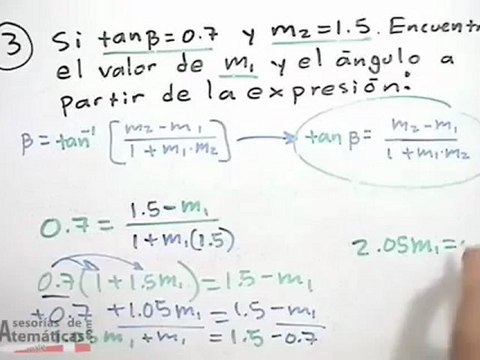 3 Si tanβ=0.7 y m₂=1.5. Encuentr
el valor de m₁ y el ángulo a
partir de la expresión:
β = tan⁻¹ [ (m₂-m₁)/(1+m₁·m₂) ] → tan β = (m₂-m₁)/(1+m₁·m₂)
0.7 = (1.5-m₁)/(1+m₁(1.5))
2.05m₁=
0.7(1+1.5m₁)=1.5-m₁
+0.7 +1.05m₁ = 1.5-m₁
1.05m₁ +m₁ = 1.5-0.7
Asesorías de
Matemáticas